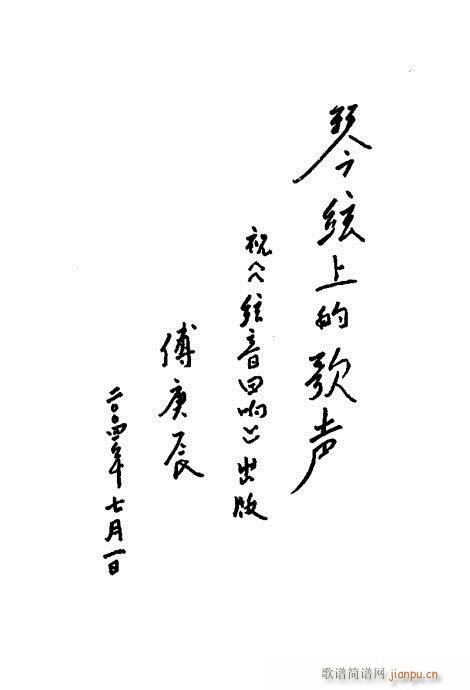 琴弦上的歌声
祝《弦音回响》出版
傅庚辰
二〇〇四年七月一日
歌谱简谱网
jianpu.cn